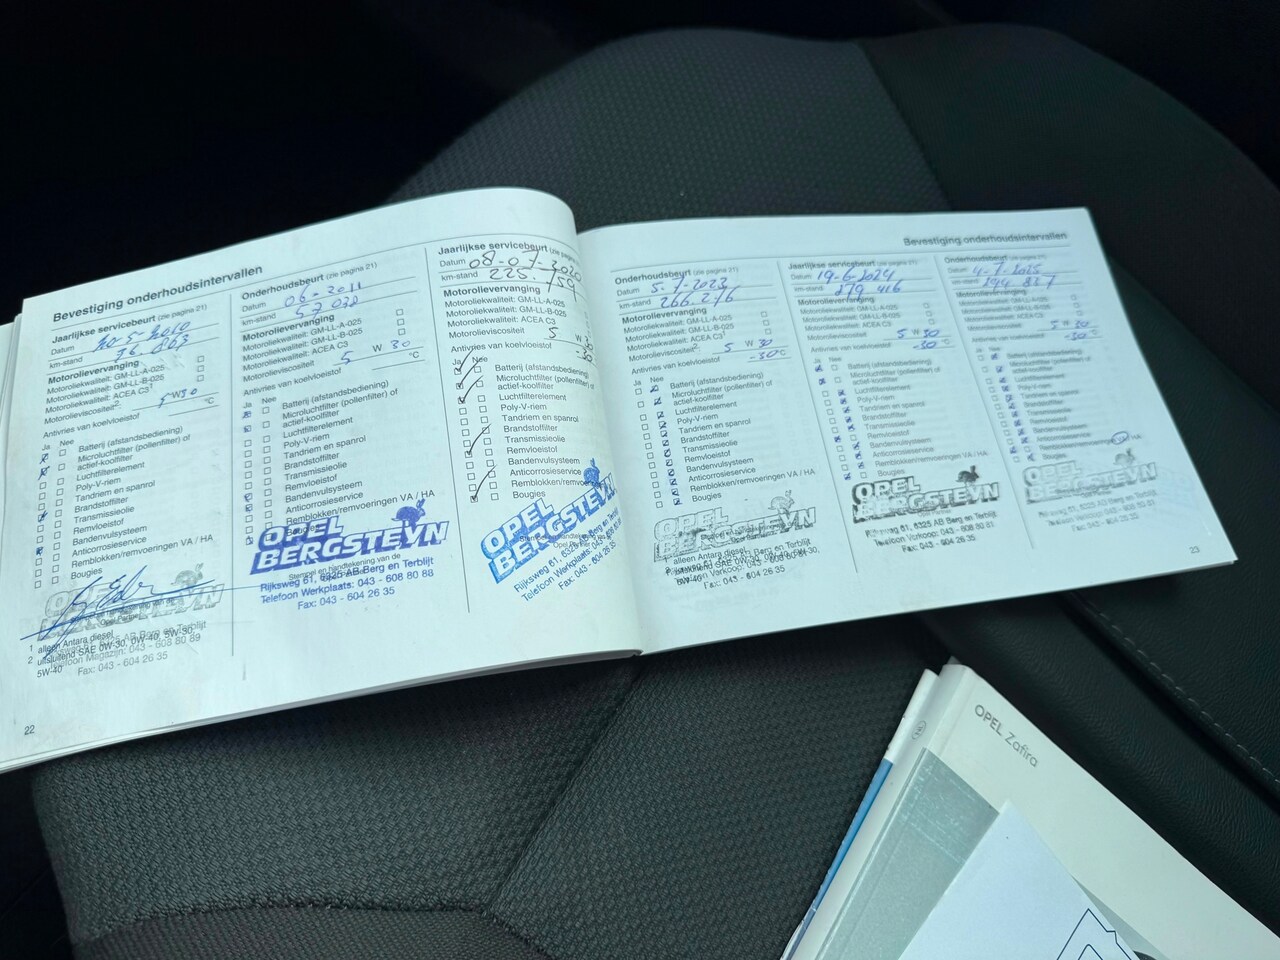 Bevestiging onderhoudsintervallen
Jaarlijkse servicebeurt (zie pagina 21)
Datum 20-5-2010
km-stand 36.863
Motorolievervanging
Motoroliekwaliteit: GM-LL-A-025
Motoroliekwaliteit: GM-LL-B-025
Motoroliekwaliteit: ACEA C3¹
Motorolieviscositeit² 5 W 30
Antivries van koelvloeistof °C
Ja Nee
Batterij (afstandsbediening)
Microluchtfilter (pollenfilter) of
actief-koolfilter
Luchtfilterelement
Poly-V-riem
Tandriem en spanrol
Brandstoffilter
Transmissieolie
Remvloeistof
Bandenvulsysteem
Anticorrosieservice
Remblokken/remvoeringen VA / HA
Bougies
1 alleen Antara diesel
2 uitsluitend SAE 0W-30, 0W-40, 5W-30,
5W-40
Fax: 043 - 604 26 35
22
Onderhoudsbeurt (zie pagina 21)
Datum 06-2011
km-stand 57 038
Motorolievervanging
Motoroliekwaliteit: GM-LL-A-025
Motoroliekwaliteit: GM-LL-B-025
Motoroliekwaliteit: ACEA C3
Motorolieviscositeit 5 W 30
Antivries van koelvloeistof °C
Ja Nee
Batterij (afstandsbediening)
Microluchtfilter (pollenfilter) of
actief-koolfilter
Luchtfilterelement
Poly-V-riem
Tandriem en spanrol
Brandstoffilter
Transmissieolie
Remvloeistof
Bandenvulsysteem
Anticorrosieservice
Remblokken/remvoeringen VA / HA
Bougies
OPEL
BERGSTEYN
Rijksweg 61, 6325 AB Berg en Terblijt
Telefoon Werkplaats: 043 - 608 80 88
Fax: 043 - 604 26 35
Jaarlijkse servicebeurt
Datum 08-07-2020
km-stand 225.759
Motorolievervanging
Motoroliekwaliteit: GM-LL-A-025
Motoroliekwaliteit: GM-LL-B-025
Motoroliekwaliteit: ACEA C3
Motorolieviscositeit 5 W 30
Antivries van koelvloeistof -30
Ja Nee
Batterij (afstandsbediening)
Microluchtfilter (pollenfilter) of
actief-koolfilter
Luchtfilterelement
Poly-V-riem
Tandriem en spanrol
Brandstoffilter
Transmissieolie
Remvloeistof
Bandenvulsysteem
Anticorrosieservice
Remblokken/remvoeringen
Bougies
OPEL
BERGSTEYN
Rijksweg 61, 6325 AB Berg en Terblijt
Telefoon Werkplaats: 043 - 608
Fax: 043 - 604 26 35
Bevestiging onderhoudsintervallen
Onderhoudsbeurt (zie pagina 21)
Datum 5-7-2023
km-stand 266.276
Motorolievervanging
Motoroliekwaliteit: GM-LL-A-025
Motoroliekwaliteit: GM-LL-B-025
Motoroliekwaliteit: ACEA C3¹
Motorolieviscositeit² 5 W 30
Antivries van koelvloeistof -30°C
Ja Nee
Batterij (afstandsbediening)
Microluchtfilter (pollenfilter) of
actief-koolfilter
Luchtfilterelement
Poly-V-riem
Tandriem en spanrol
Brandstoffilter
Transmissieolie
Remvloeistof
Bandenvulsysteem
Anticorrosieservice
Remblokken/remvoeringen VA / HA
Bougies
OPEL
BERGSTEYN
1 alleen Antara diesel
Fax: 043 - 604 26 35
Jaarlijkse servicebeurt (zie pagina 21)
Datum 19-6-2024
km-stand 279 416
Motorolievervanging
Motoroliekwaliteit: GM-LL-A-025
Motoroliekwaliteit: GM-LL-B-025
Motoroliekwaliteit: ACEA C3
Motorolieviscositeit 5 W 30
Antivries van koelvloeistof -30°C
Ja Nee
Batterij (afstandsbediening)
Microluchtfilter (pollenfilter) of
actief-koolfilter
Luchtfilterelement
Poly-V-riem
Tandriem en spanrol
Brandstoffilter
Transmissieolie
Remvloeistof
Bandenvulsysteem
Anticorrosieservice
Remblokken/remvoeringen VA / HA
Bougies
OPEL
BERGSTEYN
Rijksweg 61, 6325 AB Berg en Terblijt
Fax: 043 - 604 26 35
Onderhoudsbeurt (zie pagina 21)
Datum 4-7-2025
km-stand
Motorolievervanging
Motoroliekwaliteit: GM-LL-A-025
Motoroliekwaliteit: GM-LL-B-025
Motoroliekwaliteit: ACEA C3
Motorolieviscositeit 5 W 30
Antivries van koelvloeistof -30°C
Ja Nee
Batterij (afstandsbediening)
Microluchtfilter (pollenfilter) of
actief-koolfilter
Luchtfilterelement
Poly-V-riem
Tandriem en spanrol
Brandstoffilter
Transmissieolie
Remvloeistof
Bandenvulsysteem
Anticorrosieservice
Bougies
OPEL
BERGSTEYN
Fax: 043 - 604 26 35
23
OPEL Zafira